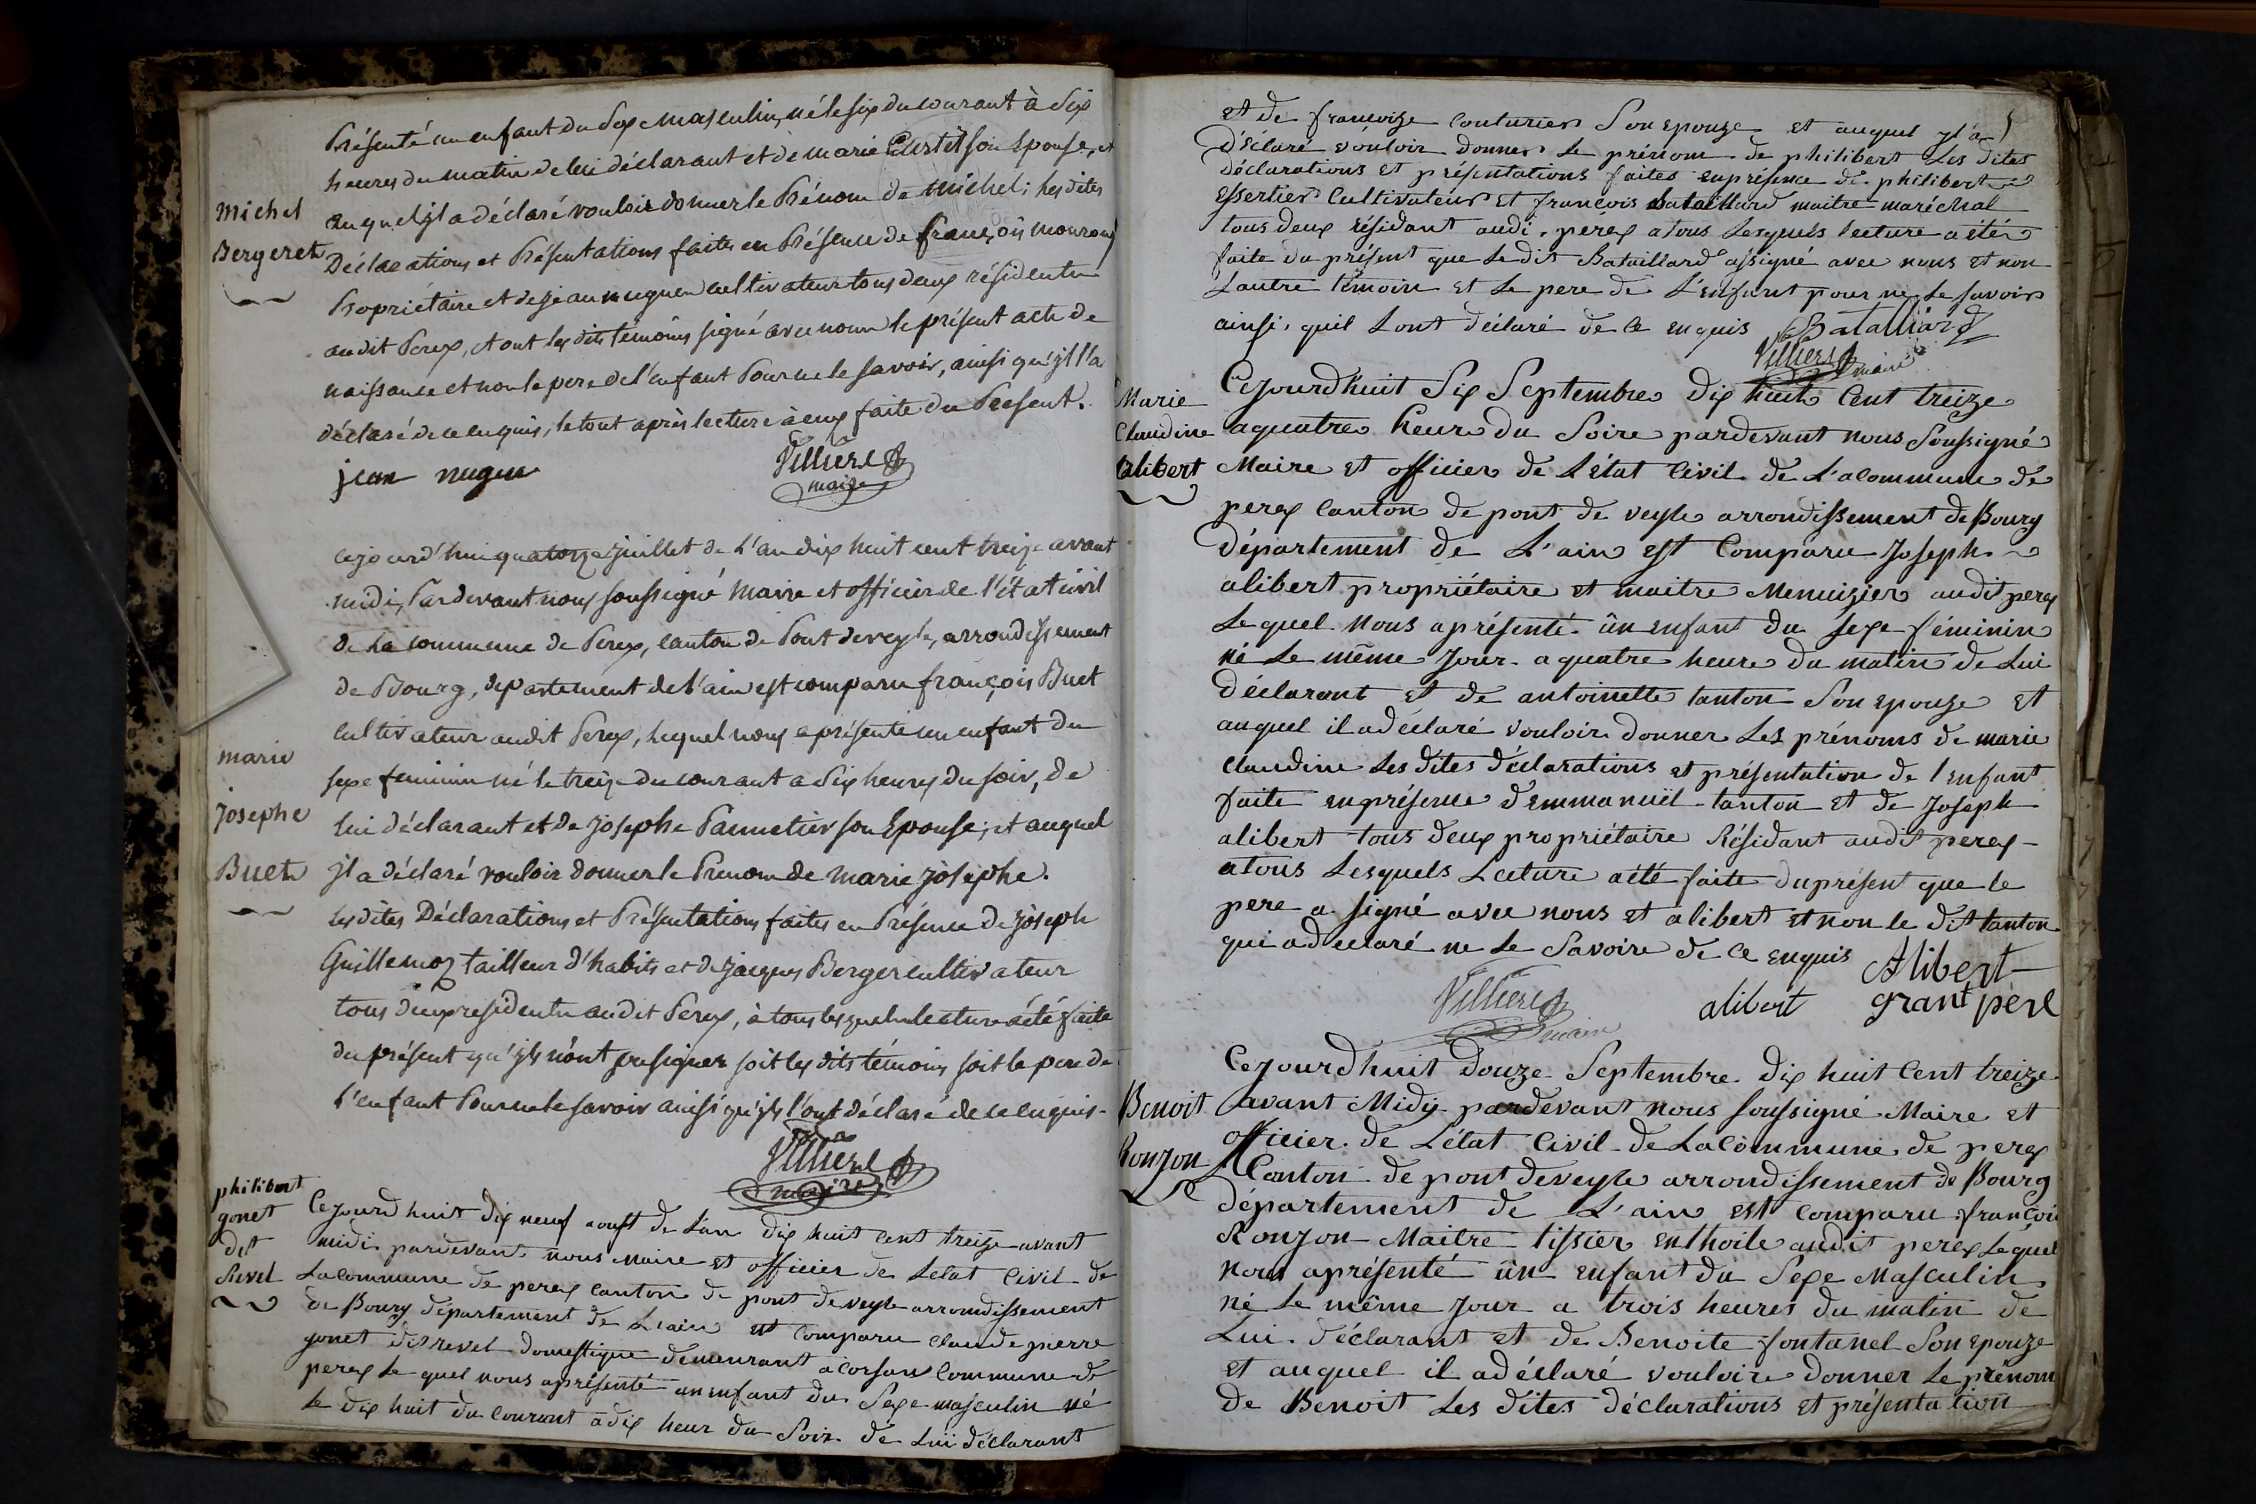 Présenté un enfant du Sexe Masculin, né le six du courant à Six
heures du matin de lui déclarant et de marie Curtet son Epouse, et
Michel
auquel jl a déclaré vouloir donner le Prénom de Michel; les dites
Bergeret
Déclarations et Présentations faites en Présence de françois mouroux
Propriétaire et de jean nugue cultivateur tous deux résidents
audit Perex, et ont les dits témoins signé avec nous le présent acte de
naissance et non le pere de l'enfant Pour ne le savoir, ainsi qu'jl l'a
déclaré de ce enquis, le tout après lecture à eux faite du Present.
jean nugue
Villiers
maire
cejourd'hui quatorze juillet de L'an dix huit cent treize avant
midi, Pardevant nous soussigné Maire et officier de l'état civil
de La commune de Perex, canton de Pont deveyle, arrondissement
de Bourg, département de l'ain est comparu françois Buet
cultivateur audit Perex, lequel nous a présenté un enfant du
marie
sexe feminin né le treize du courant a Six heures du soir, de
josephe
lui déclarant et de josephe Pannetier son Epouse, et auquel
Buet
jl a déclaré vouloir donner le Prenom de marie josephe.
les dites Déclarations et Présentations faites en Présence de joseph
Guillemoz tailleur d'habits et de jacques Berger cultivateur
tous deux residents audit Perex, à tous lesquels lecture a été faite
du présent qu'jls n'ont pu signer soit les dits témoins soit le pere de
l'enfant Pour ne le savoir ainsi qu'jls l'ont déclaré de ce enquis.
Villiers
maire
philibert
gonet
dit
Revel
Cejourd huit dix neuf aoust de L'an dix huit cent treize avant
midi pardevant nous Maire et officier de Letat Civil de
Lacommune de perex canton de pont deveyle arrondissement
de Bourg département de L'ain est comparu claude pierre
gonet dit revel domestique demeurant à corsant Commune de
perex le quel nous aprésenté un enfant du Sexe masculin né
le dix huit du courant à dix heur du Soir de Lui déclarant
et de françoize couturier Son epouze et auquel yl a
déclaré vouloir donner le prénom de philibert Les dites
déclarations et présentations faites enprésence de philibert
Essertier Cultivateur et françois Bataillard maitre maréchal
tous deux résidant audi perex a tous Lesquels lecture a été
faite du présent que Le dit Bataillard asigné avec nous et non
Lautre témoin et le pere de L'enfant pour ne le savoir
ainsi quil Lont déclaré de ce enquis Batalliard
Villiers
maire
Marie
Claudine
alibert
Cejourdhuit Six Septembre dix huit Cent treize
aquatre heur du Soire pardevant nous Soussigné
Maire et officier de L'état Civil de L'acommune de
perex canton de pont de veyle arrondissement de Bourg
département de L'ain est Comparu Joseph
alibert propriétaire et maitre Menuizier audit perex
Le quel nous aprésenté ûn enfant du sexe féminin
né Le même Jour a quatre heure du matin de Lui
déclarant et de antoinette tanton Son epouze et
auquel il adéclaré vouloir donner Les prénoms de marie
claudine Les dites déclarations et présentation de l enfant
faite enprésence d'emmanuël tanton et de Joseph
alibert tous deux propriétaire Résidant audit perex
atous Lesquels Lecture aété faite duprésent que le
pere a signé avec nous et alibert et non le dit tanton
qui adeclaré ne le Savoire de ce enquis
Alibert
Villiers
maire
alibert
grant père
Benoit
Ronjon
Cejourdhuit douze Septembre dix huit Cent treize
avant Midy pardevant nous soussigné Maire et
officier de L'état Civil de Lacommune de perex
Canton de pont deveyle arrondissement de Bourg
département de L'ain est Comparu françois
Ronjon Maitre tissier enthoile audit perex Lequel
nous aprésenté ûn enfant du Sexe Masculin
né Le même Jour a trois heures du matin de
Lui déclarant et de Benoite fontanel Son epouze
et auquel il adéclaré vouloire donner Le prénom
de Benoit Les dites déclarations et présentation